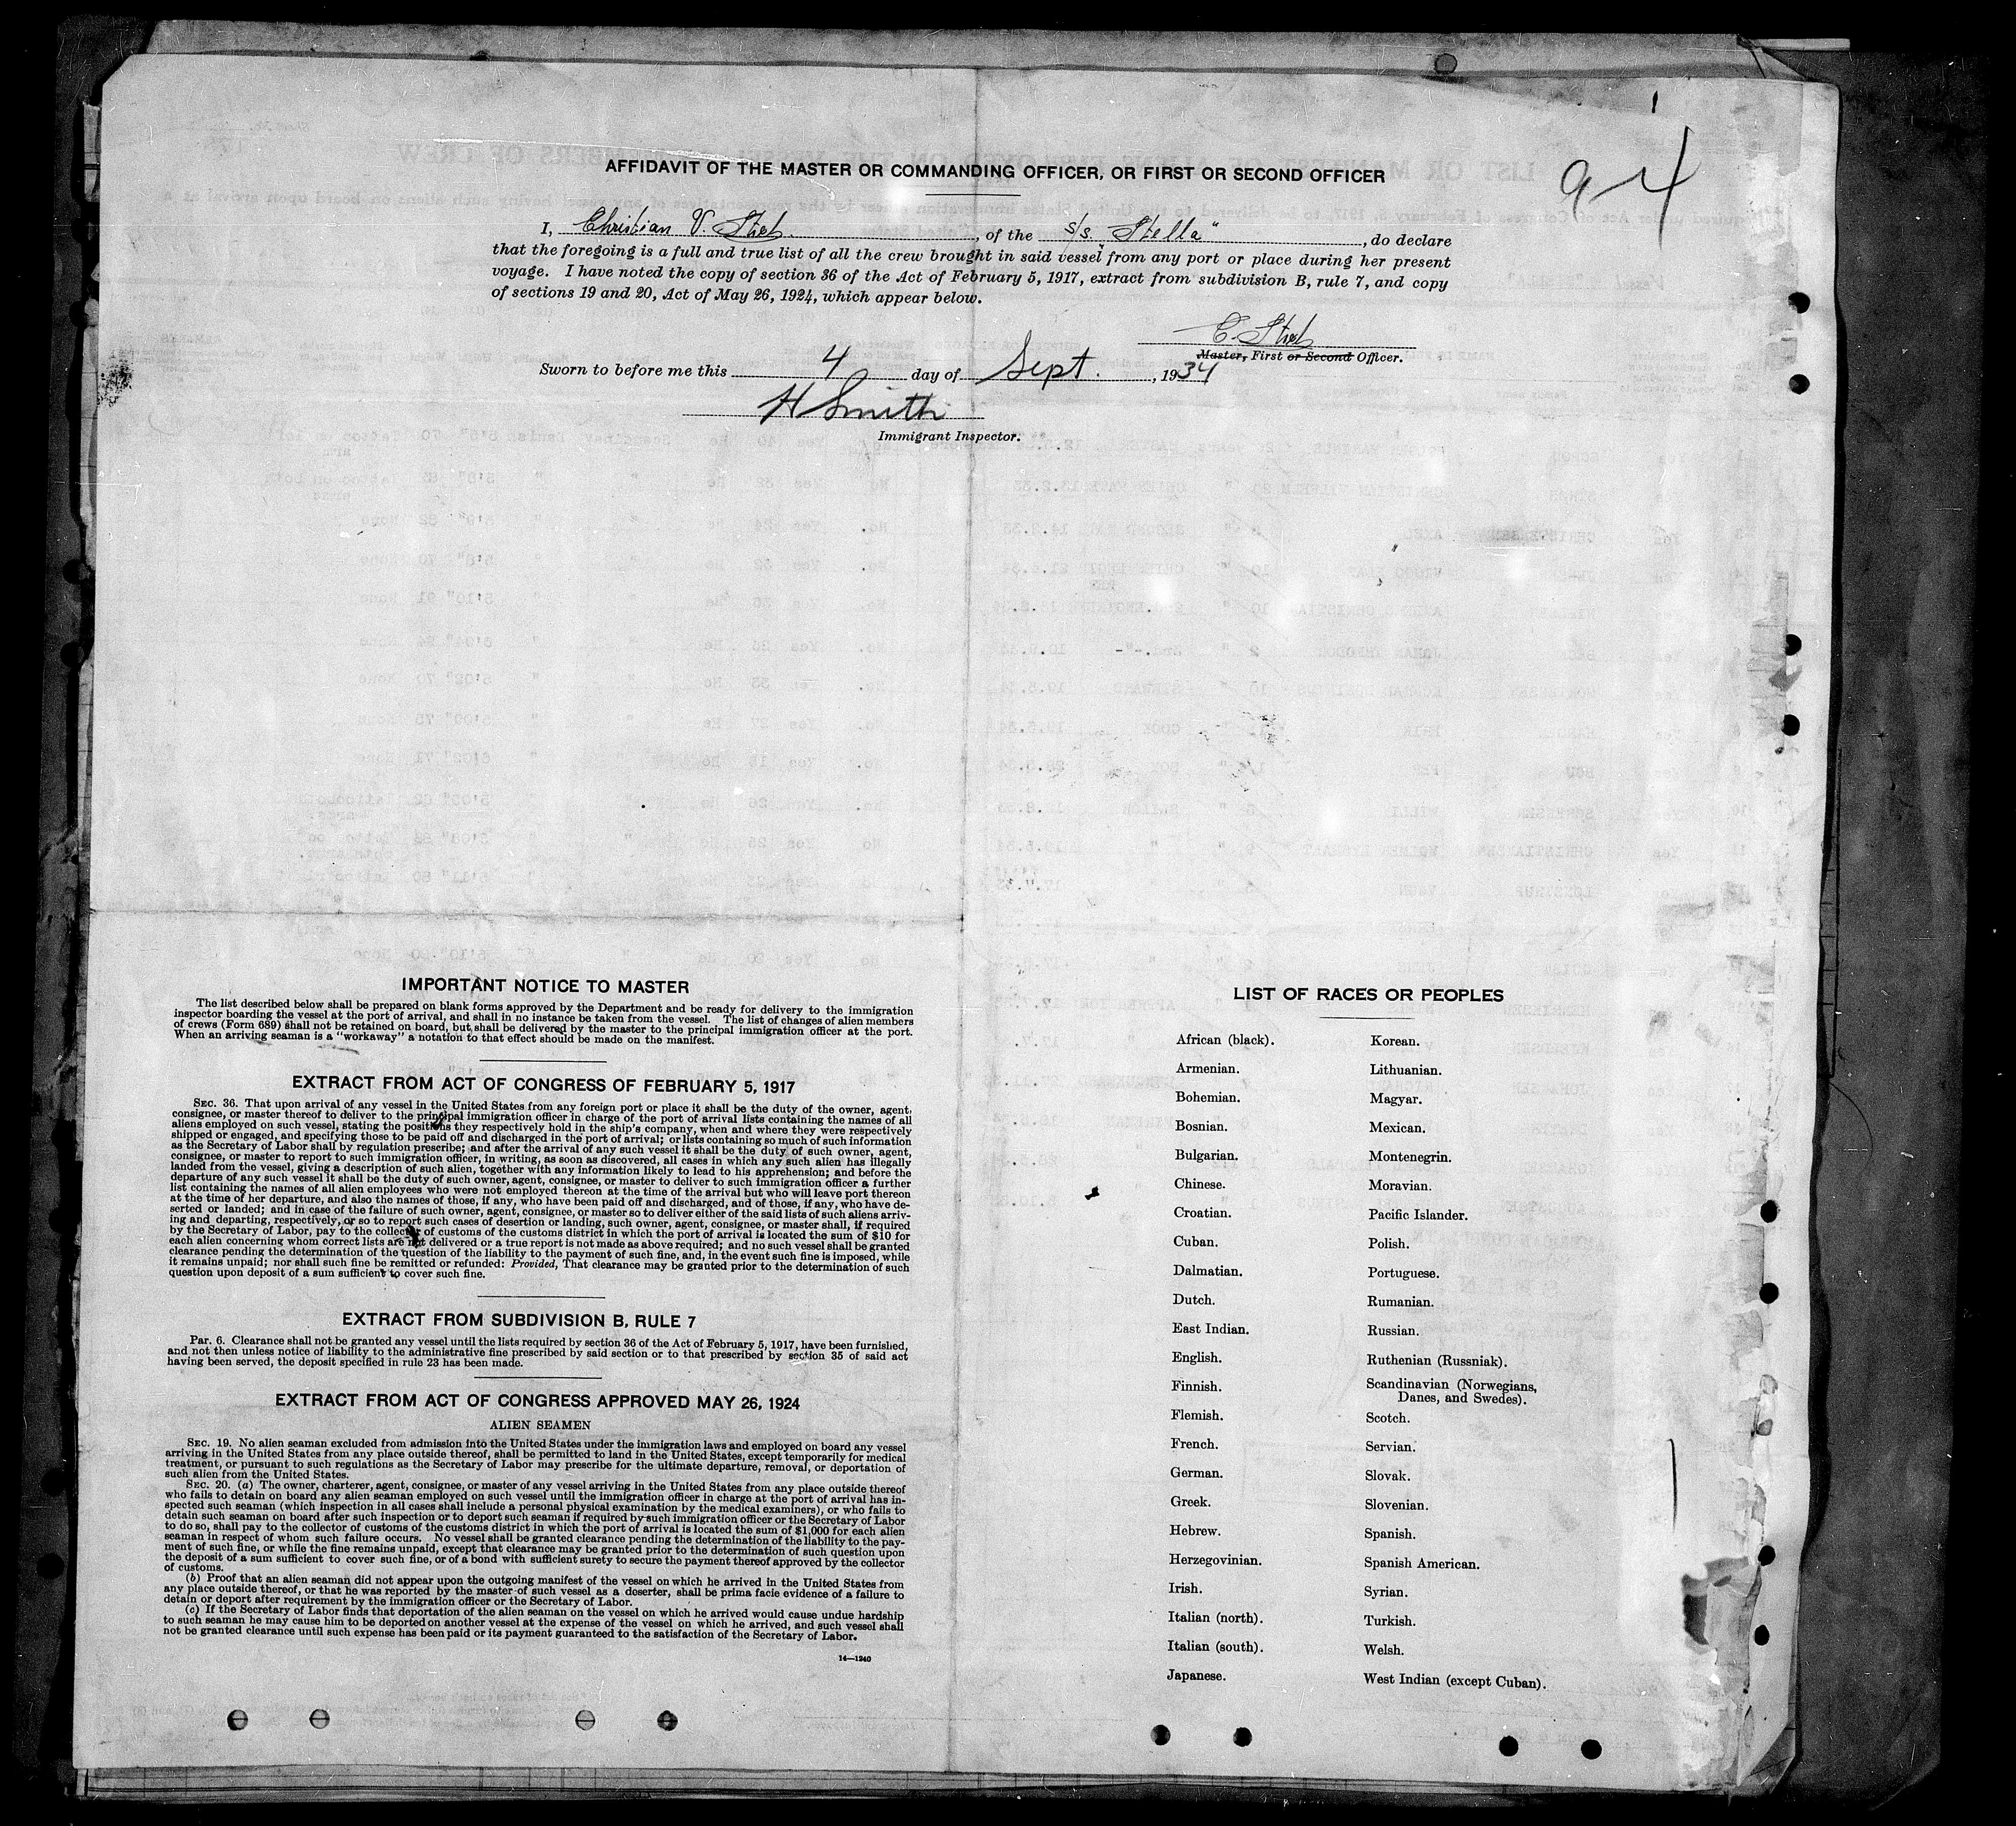 9-4
AFFIDAVIT OF THE MASTER OR COMMANDING OFFICER, OR FIRST OR SECOND OFFICER
I, Christian V. , of the s/s. "Stella", do declare
that the foregoing is a full and true list of all the crew brought in said vessel from any port or place during her present
voyage. I have noted the copy of section 36 of the Act of February 5, 1917, extract from subdivision B, rule 7, and copy
of sections 19 and 20, Act of May 26, 1924, which appear below.
C.
Master, First or Second Officer.
Sworn to before me this 4 day of Sept. , 1934
H Smith
Immigrant Inspector.
IMPORTANT NOTICE TO MASTER
The list described below shall be prepared on blank forms approved by the Department and be ready for delivery to the immigration
inspector boarding the vessel at the port of arrival, and shall in no instance be taken from the vessel. The list of changes of alien members
of crews (Form 689) shall not be retained on board, but shall be delivered by the master to the principal immigration officer at the port.
When an arriving seaman is a "workaway" a notation to that effect should be made on the manifest.
EXTRACT FROM ACT OF CONGRESS OF FEBRUARY 5, 1917
SEC. 36. That upon arrival of any vessel in the United States from any foreign port or place it shall be the duty of the owner, agent,
consignee, or master thereof to deliver to the principal immigration officer in charge of the port of arrival lists containing the names of all
aliens employed on such vessel, stating the positions they respectively hold in the ship's company, when and where they were respectively
shipped or engaged, and specifying those to be paid off and discharged in the port of arrival; or lists containing so much of such information
as the Secretary of Labor shall by regulation prescribe; and after the arrival of any such vessel it shall be the duty of such owner, agent,
consignee, or master to report to such immigration officer, in writing, as soon as discovered, all cases in which any such alien has illegally
landed from the vessel, giving a description of such alien, together with any information likely to lead to his apprehension; and before the
departure of any such vessel it shall be the duty of such owner, agent, consignee, or master to deliver to such immigration officer a further
list containing the names of all alien employees who were not employed thereon at the time of the arrival but who will leave port thereon
at the time of her departure, and also the names of those, if any, who have been paid off and discharged, and of those, if any, who have de-
serted or landed; and in case of the failure of such owner, agent, consignee, or master so to deliver either of the said lists of such aliens arriv-
ing and departing, respectively, or so to report such cases of desertion or landing, such owner, agent, consignee, or master shall, if required
by the Secretary of Labor, pay to the collector of customs of the customs district in which the port of arrival is located the sum of $10 for
each alien concerning whom correct lists are not delivered or a true report is not made as above required; and no such vessel shall be granted
clearance pending the determination of the question of the liability to the payment of such fine, and, in the event such fine is imposed, while
it remains unpaid; nor shall such fine be remitted or refunded: Provided, That clearance may be granted prior to the determination of such
question upon deposit of a sum sufficient to cover such fine.
EXTRACT FROM SUBDIVISION B, RULE 7
Par. 6. Clearance shall not be granted any vessel until the lists required by section 36 of the Act of February 5, 1917, have been furnished,
and not then unless notice of liability to the administrative fine prescribed by said section or to that prescribed by section 35 of said act
having been served, the deposit specified in rule 23 has been made.
EXTRACT FROM ACT OF CONGRESS APPROVED MAY 26, 1924
ALIEN SEAMEN
SEC. 19. No alien seaman excluded from admission into the United States under the immigration laws and employed on board any vessel
arriving in the United States from any place outside thereof, shall be permitted to land in the United States, except temporarily for medical
treatment, or pursuant to such regulations as the Secretary of Labor may prescribe for the ultimate departure, removal, or deportation of
such alien from the United States.
SEC. 20. (a) The owner, charterer, agent, consignee, or master of any vessel arriving in the United States from any place outside thereof
who fails to detain on board any alien seaman employed on such vessel until the immigration officer in charge at the port of arrival has in-
spected such seaman (which inspection in all cases shall include a personal physical examination by the medical examiners), or who fails to
detain such seaman on board after such inspection or to deport such seaman if required by such immigration officer or the Secretary of Labor
to do so, shall pay to the collector of customs of the customs district in which the port of arrival is located the sum of $1,000 for each alien
seaman in respect of whom such failure occurs. No vessel shall be granted clearance pending the determination of the liability to the pay-
ment of such fine, or while the fine remains unpaid, except that clearance may be granted prior to the determination of such question upon
the deposit of a sum sufficient to cover such fine, or of a bond with sufficient surety to secure the payment thereof approved by the collector
of customs.
(b) Proof that an alien seaman did not appear upon the outgoing manifest of the vessel on which he arrived in the United States from
any place outside thereof, or that he was reported by the master of such vessel as a deserter, shall be prima facie evidence of a failure to
detain or deport after requirement by the immigration officer or the Secretary of Labor.
(c) If the Secretary of Labor finds that deportation of the alien seaman on the vessel on which he arrived would cause undue hardship
to such seaman he may cause him to be deported on another vessel at the expense of the vessel on which he arrived, and such vessel shall
not be granted clearance until such expense has been paid or its payment guaranteed to the satisfaction of the Secretary of Labor.
14—1240
LIST OF RACES OR PEOPLES
African (black).
Armenian.
Bohemian.
Bosnian.
Bulgarian.
Chinese.
Croatian.
Cuban.
Dalmatian.
Dutch.
East Indian.
English.
Finnish.
Flemish.
French.
German.
Greek.
Hebrew.
Herzegovinian.
Irish.
Italian (north).
Italian (south).
Japanese.
Korean.
Lithuanian.
Magyar.
Mexican.
Montenegrin.
Moravian.
Pacific Islander.
Polish.
Portuguese.
Rumanian.
Russian.
Ruthenian (Russniak).
Scandinavian (Norwegians,
Danes, and Swedes).
Scotch.
Servian.
Slovak.
Slovenian.
Spanish.
Spanish American.
Syrian.
Turkish.
Welsh.
West Indian (except Cuban).